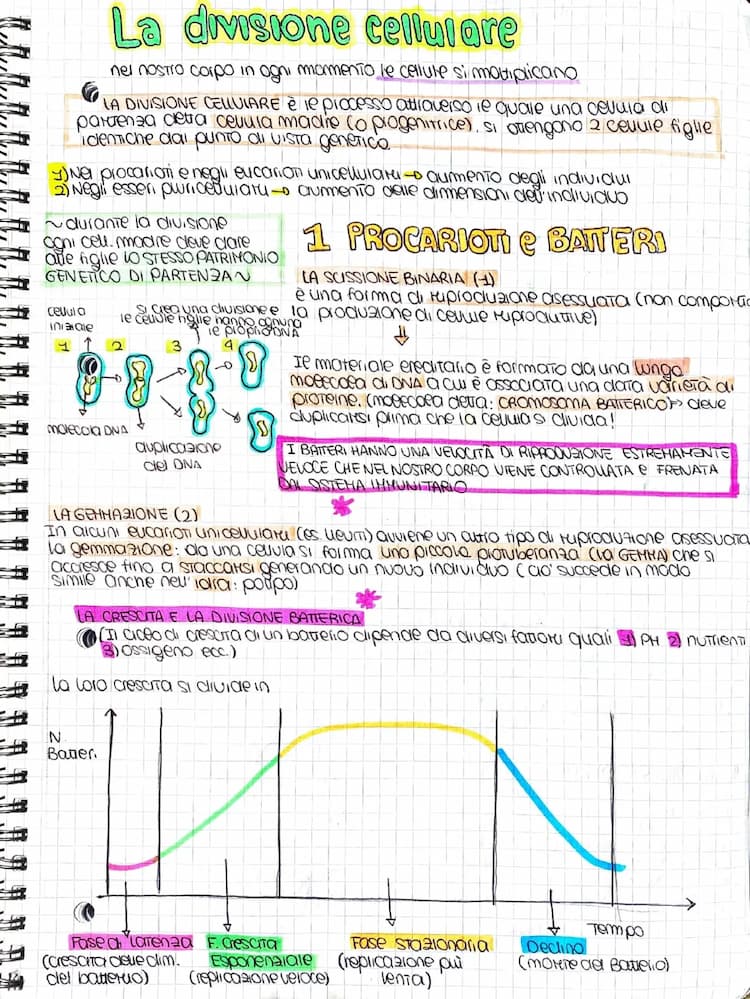 La divisione cellulare
nel nostro corpo in ogni momento le cellule si moltiplicano
LA DIVISIONE CELLULARE è il processo attraverso il quale una cellula di
partenza detta cellula madre (o progenitrice), si ottengono 2 cellule figlie
identiche dal punto di vista genetico
1) Nei procarioti e negli eucarioti unicellulari → aumento degli individui
2) Negli esseri pluricellulari → aumento delle dimensioni dell'individuo
~ durante la divisione
ogni cell. madre deve dare
alle figlie LO STESSO PATRIMONIO
GENETICO DI PARTENZA ~
1 PROCARIOTI e BATTERI
LA SCISSIONE BINARIA (1)
è una forma di riproduzione asessuata (non comporta
la produzione di cellule riproduttive)
cellula
iniziale
si crea una divisione e
le cellule figlie hanno ognuna
il proprio DNA
1 2 3 4
molecola DNA
duplicazione
del DNA
Il materiale ereditario è formato da una lunga
molecola di DNA a cui è associata una data varietà di
proteine. (molecola detta: CROMOSOMA BATTERICO) → deve
duplicarsi prima che la cellula si divida!
I BATTERI HANNO UNA VELOCITÀ DI RIPRODUZIONE ESTREMAMENTE
VELOCE CHE NEL NOSTRO CORPO VIENE CONTROLLATA E FRENATA
DAL SISTEMA IMMUNITARIO
LA GEMMAZIONE (2)
In alcuni eucarioti unicellulari (es. lieviti) avviene un altro tipo di riproduzione asessuata
la gemmazione: da una cellula si forma una piccola protuberanza (la GEMMA) che si
accresce fino a staccarsi generando un nuovo individuo (ciò succede in modo
simile anche nell'idra: polipo)
LA CRESCITA E LA DIVISIONE BATTERICA
(Il ciclo di crescita di un batterio dipende da diversi fattori quali 1) PH 2) nutrienti
3) ossigeno ecc.)
La loro crescita si divide in
N.
Batteri
Tempo
Fase di latenza
(crescita delle dim.
del batterio)
F. crescita
Esponenziale
(replicazione veloce)
Fase stazionaria
(replicazione più
lenta)
Declino
(morte del Batterio)